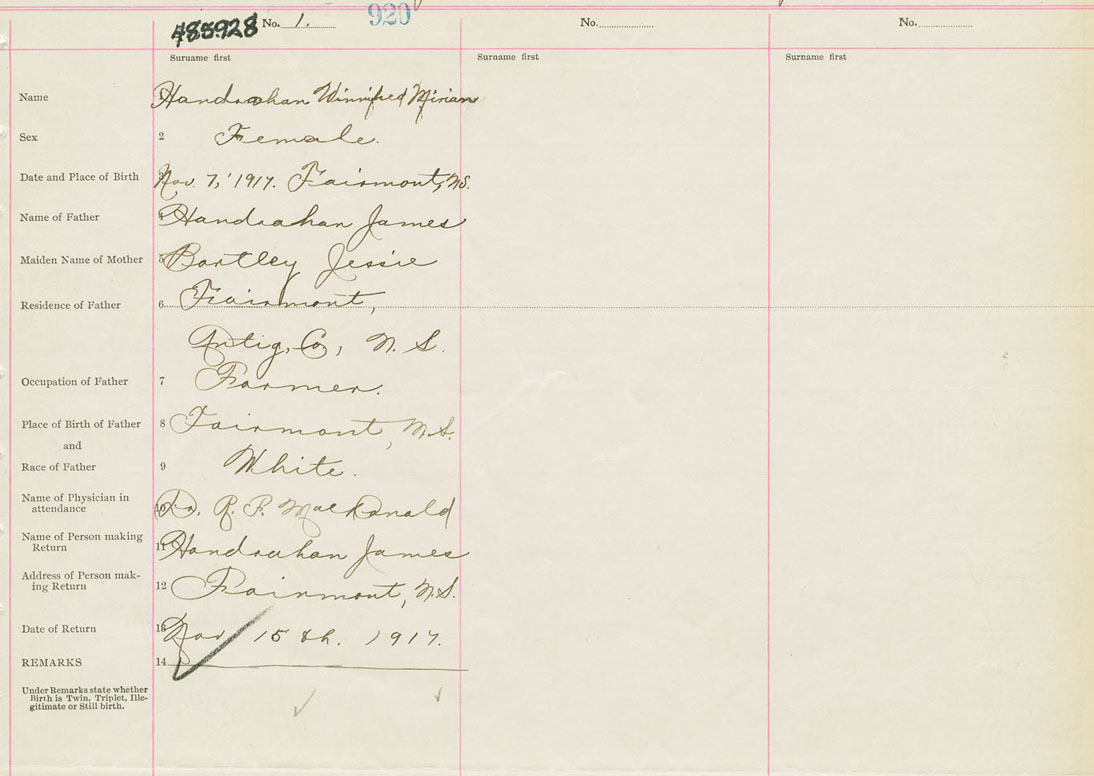 485928 No. 1. 920 No. No.
Suruame first Surname first Surname first
Name 1 Handrahan Winnifred Miriam
Sex 2 Female.
Date and Place of Birth 3 Nov. 7, 1917. Fairmont, N.S.
Name of Father 4 Handrahan James
Maiden Name of Mother 5 Bartley Jessie
Residence of Father 6 Fairmont,
Antig. Co, N. S.
Occupation of Father 7 Farmer.
Place of Birth of Father 8 Fairmont, N.S.
and
Race of Father 9 White.
Name of Physician in
attendance 10 Dr. R. F. MacDonald
Name of Person making
Return 11 Handrahan James
Address of Person mak-
ing Return 12 Fairmont, N.S.
Date of Return 13 Nov 15th. 1917.
REMARKS 14
Under Remarks state whether
Birth is Twin, Triplet, Ille-
gitimate or Still birth.